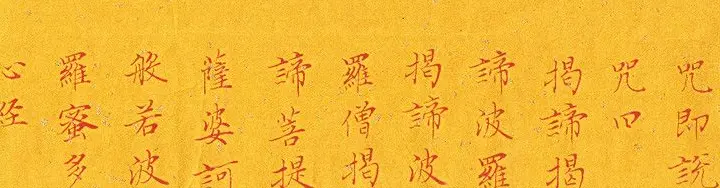 咒即說
咒曰
揭諦揭
諦波羅
揭諦波
羅僧揭
諦菩提
薩婆訶
般若波
羅蜜多
心経